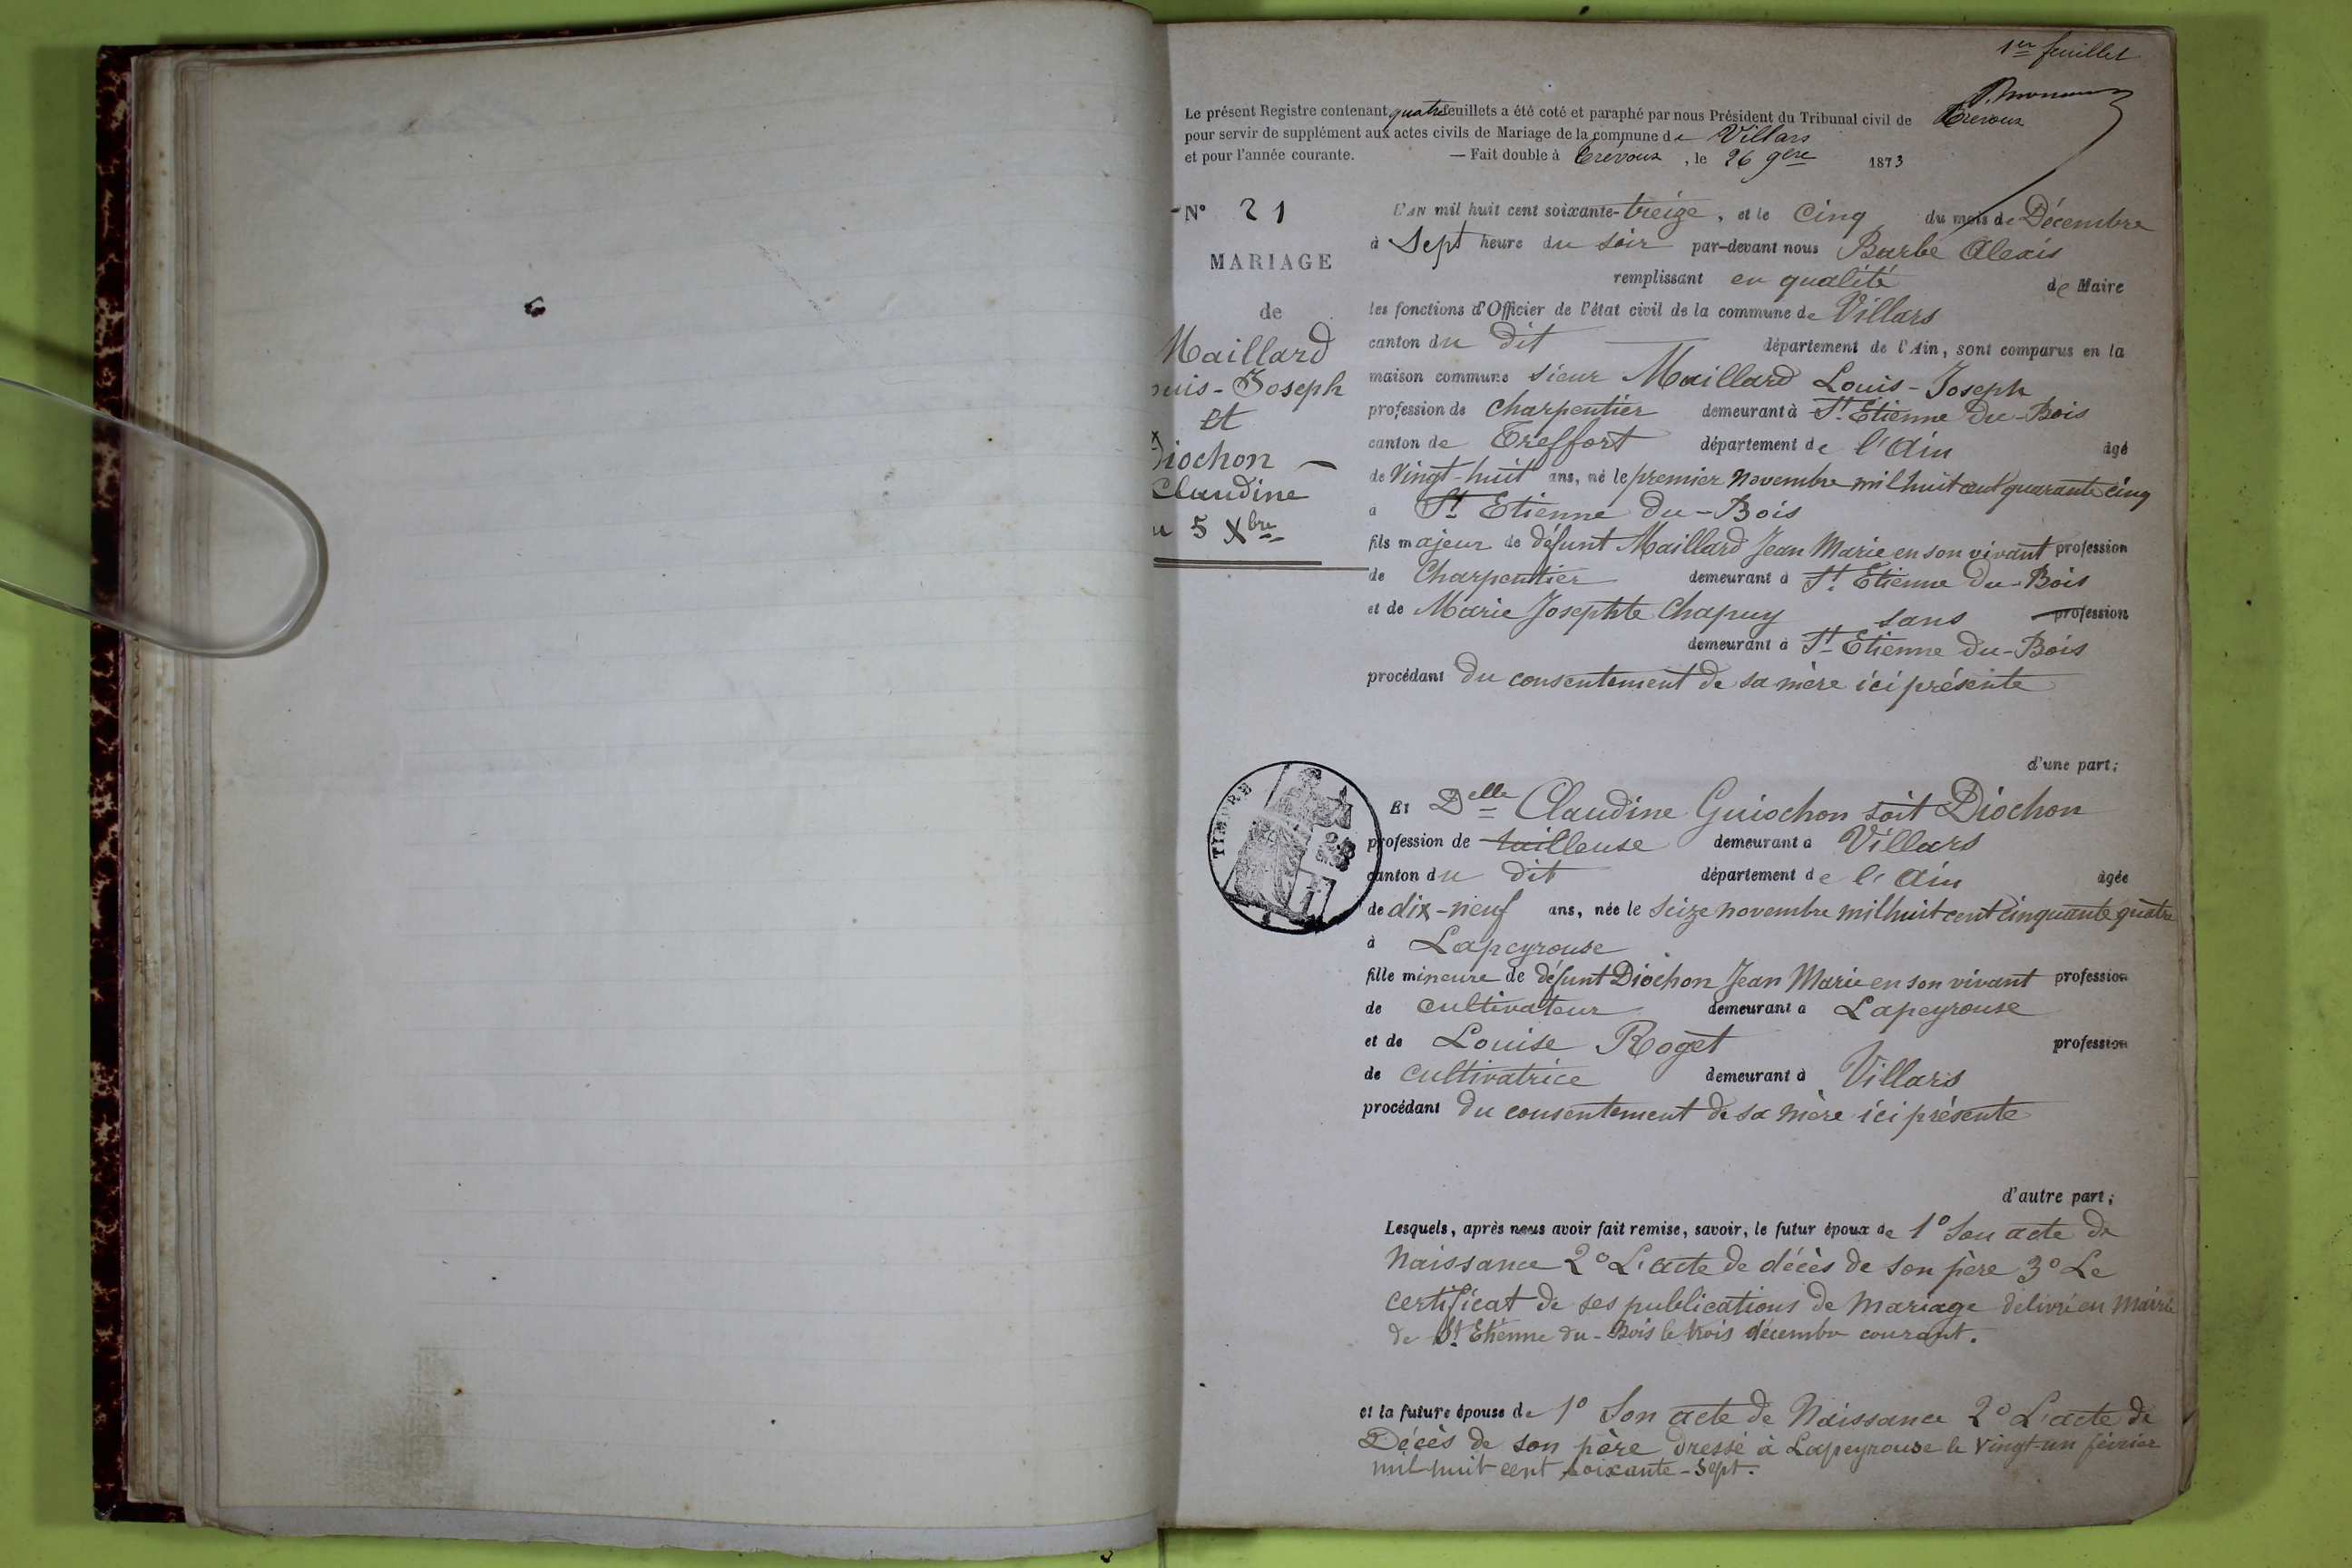 1er feuillet
Le présent Registre contenant quatre feuillets a été coté et paraphé par nous Président du Tribunal civil de Trevoux
pour servir de supplément aux actes civils de Mariage de la commune de Villars
et pour l'année courante. — Fait double à Trevoux, le 26 9bre 1873
N° 21
MARIAGE
de
Maillard
ouis-Joseph
et
Diochon
Claudine
u 5 Xbre
L'AN mil huit cent soixante-treize, et le Cinq du mois de Décembre
à Sept heure du soir par-devant nous Barbe Alexis
remplissant en qualité de Maire
les fonctions d'Officier de l'état civil de la commune de Villars
canton du dit département de l'Ain, sont comparus en la
maison commune sieur Maillard Louis-Joseph
profession de Charpentier demeurant à St Etienne Du-Bois
canton de Treffort département de l'Ain âgé
de Vingt-huit ans, né le premier Novembre mil huit cent quarante cinq
à St Etienne Du-Bois
fils majeur de défunt Maillard Jean Marie en son vivant profession
de Charpentier demeurant à St Etienne Du-Bois
et de Marie Josephte Chapuy sans profession
demeurant à St Etienne Du-Bois
procédant du consentement de sa mère ici présente
d'une part;
TIMBRE
Et Delle Claudine Guiochon soit Diochon
profession de tailleuse demeurant à Villars
canton du dit département de l'Ain âgée
de dix-neuf ans, née le seize novembre mil huit cent cinquante quatre
à Lapeyrouse
fille mineure de défunt Diochon Jean Marie en son vivant profession
de cultivateur demeurant à Lapeyrouse
et de Louise Roget profession
de cultivatrice demeurant à Villars
procédant du consentement de sa mère ici présente
d'autre part;
Lesquels, après nous avoir fait remise, savoir, le futur époux de 1° Son acte de
Naissance 2° L'acte de décès de son père 3° Le
certificat de ses publications de Mariage délivré en Mairie
de St Etienne du-Bois le trois décembre courant.
et la future épouse de 1° Son acte de Naissance 2° L'acte de
Décès de son père dressé à Lapeyrouse le vingt-un février
mil huit cent soixante-sept.